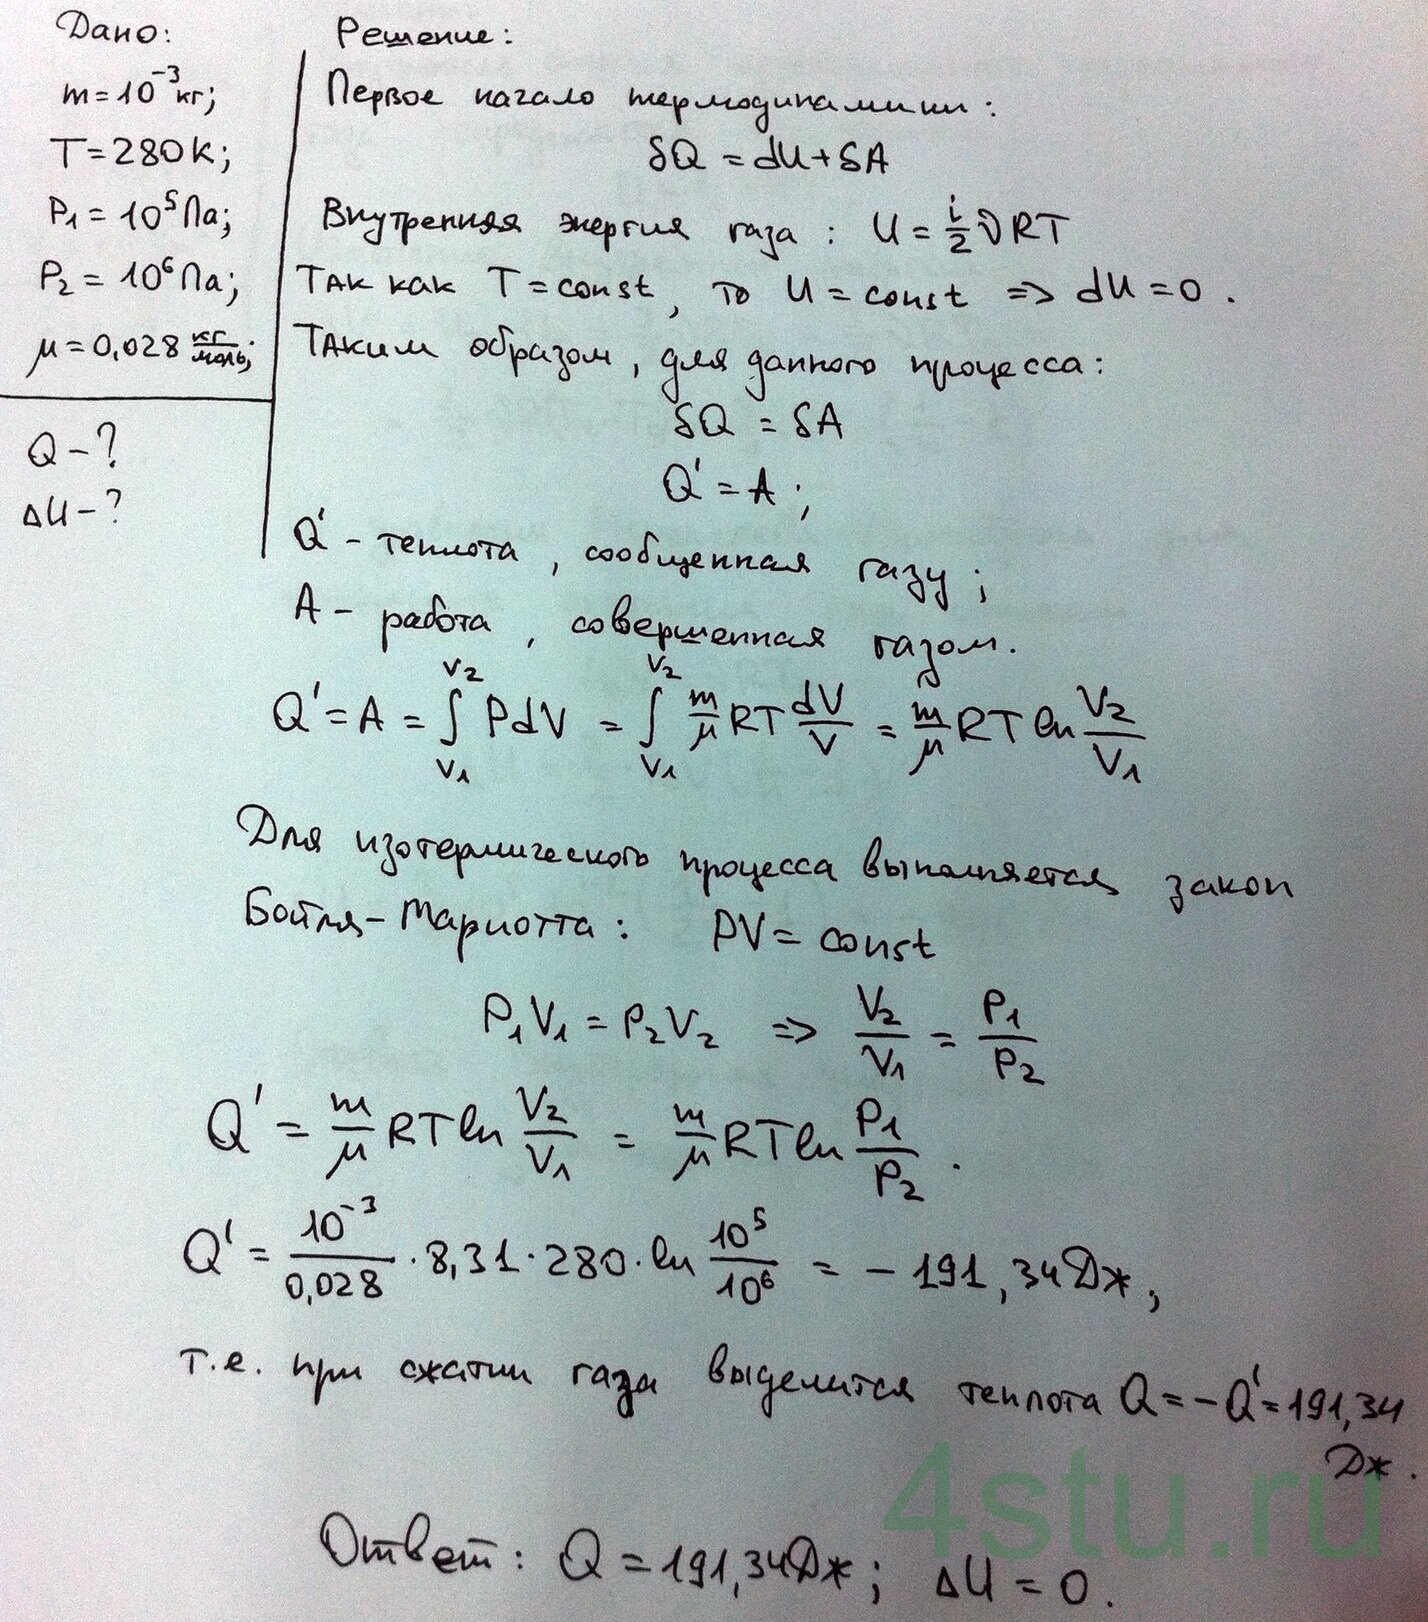 Дано:
m = 10⁻³ кг;
T = 280 К;
P₁ = 10⁵ Па;
P₂ = 10⁶ Па;
μ = 0,028 кг/моль;
Q - ?
ΔU - ?
Решение:
Первое начало термодинамики:
δQ = dU + δA
Внутренняя энергия газа: U = i/2 νRT
Так как T = const, то U = const => dU = 0.
Таким образом, для данного процесса:
δQ = δA
Q' = A;
Q' - теплота, сообщенная газу;
A - работа, совершенная газом.
Q' = A = ∫_{V₁}^{V₂} PdV = ∫_{V₁}^{V₂} m/μ RT dV/V = m/μ RT ln V₂/V₁
Для изотермического процесса выполняется закон
Бойля-Мариотта: PV = const
P₁V₁ = P₂V₂ => V₂/V₁ = P₁/P₂
Q' = m/μ RT ln V₂/V₁ = m/μ RT ln P₁/P₂.
Q' = 10⁻³/0,028 · 8,31 · 280 · ln 10⁵/10⁶ = -191,34 Дж,
т.е. при сжатии газа выделится теплота Q = -Q' = 191,34
Дж.
4stu.ru
Ответ: Q = 191,34 Дж; ΔU = 0.